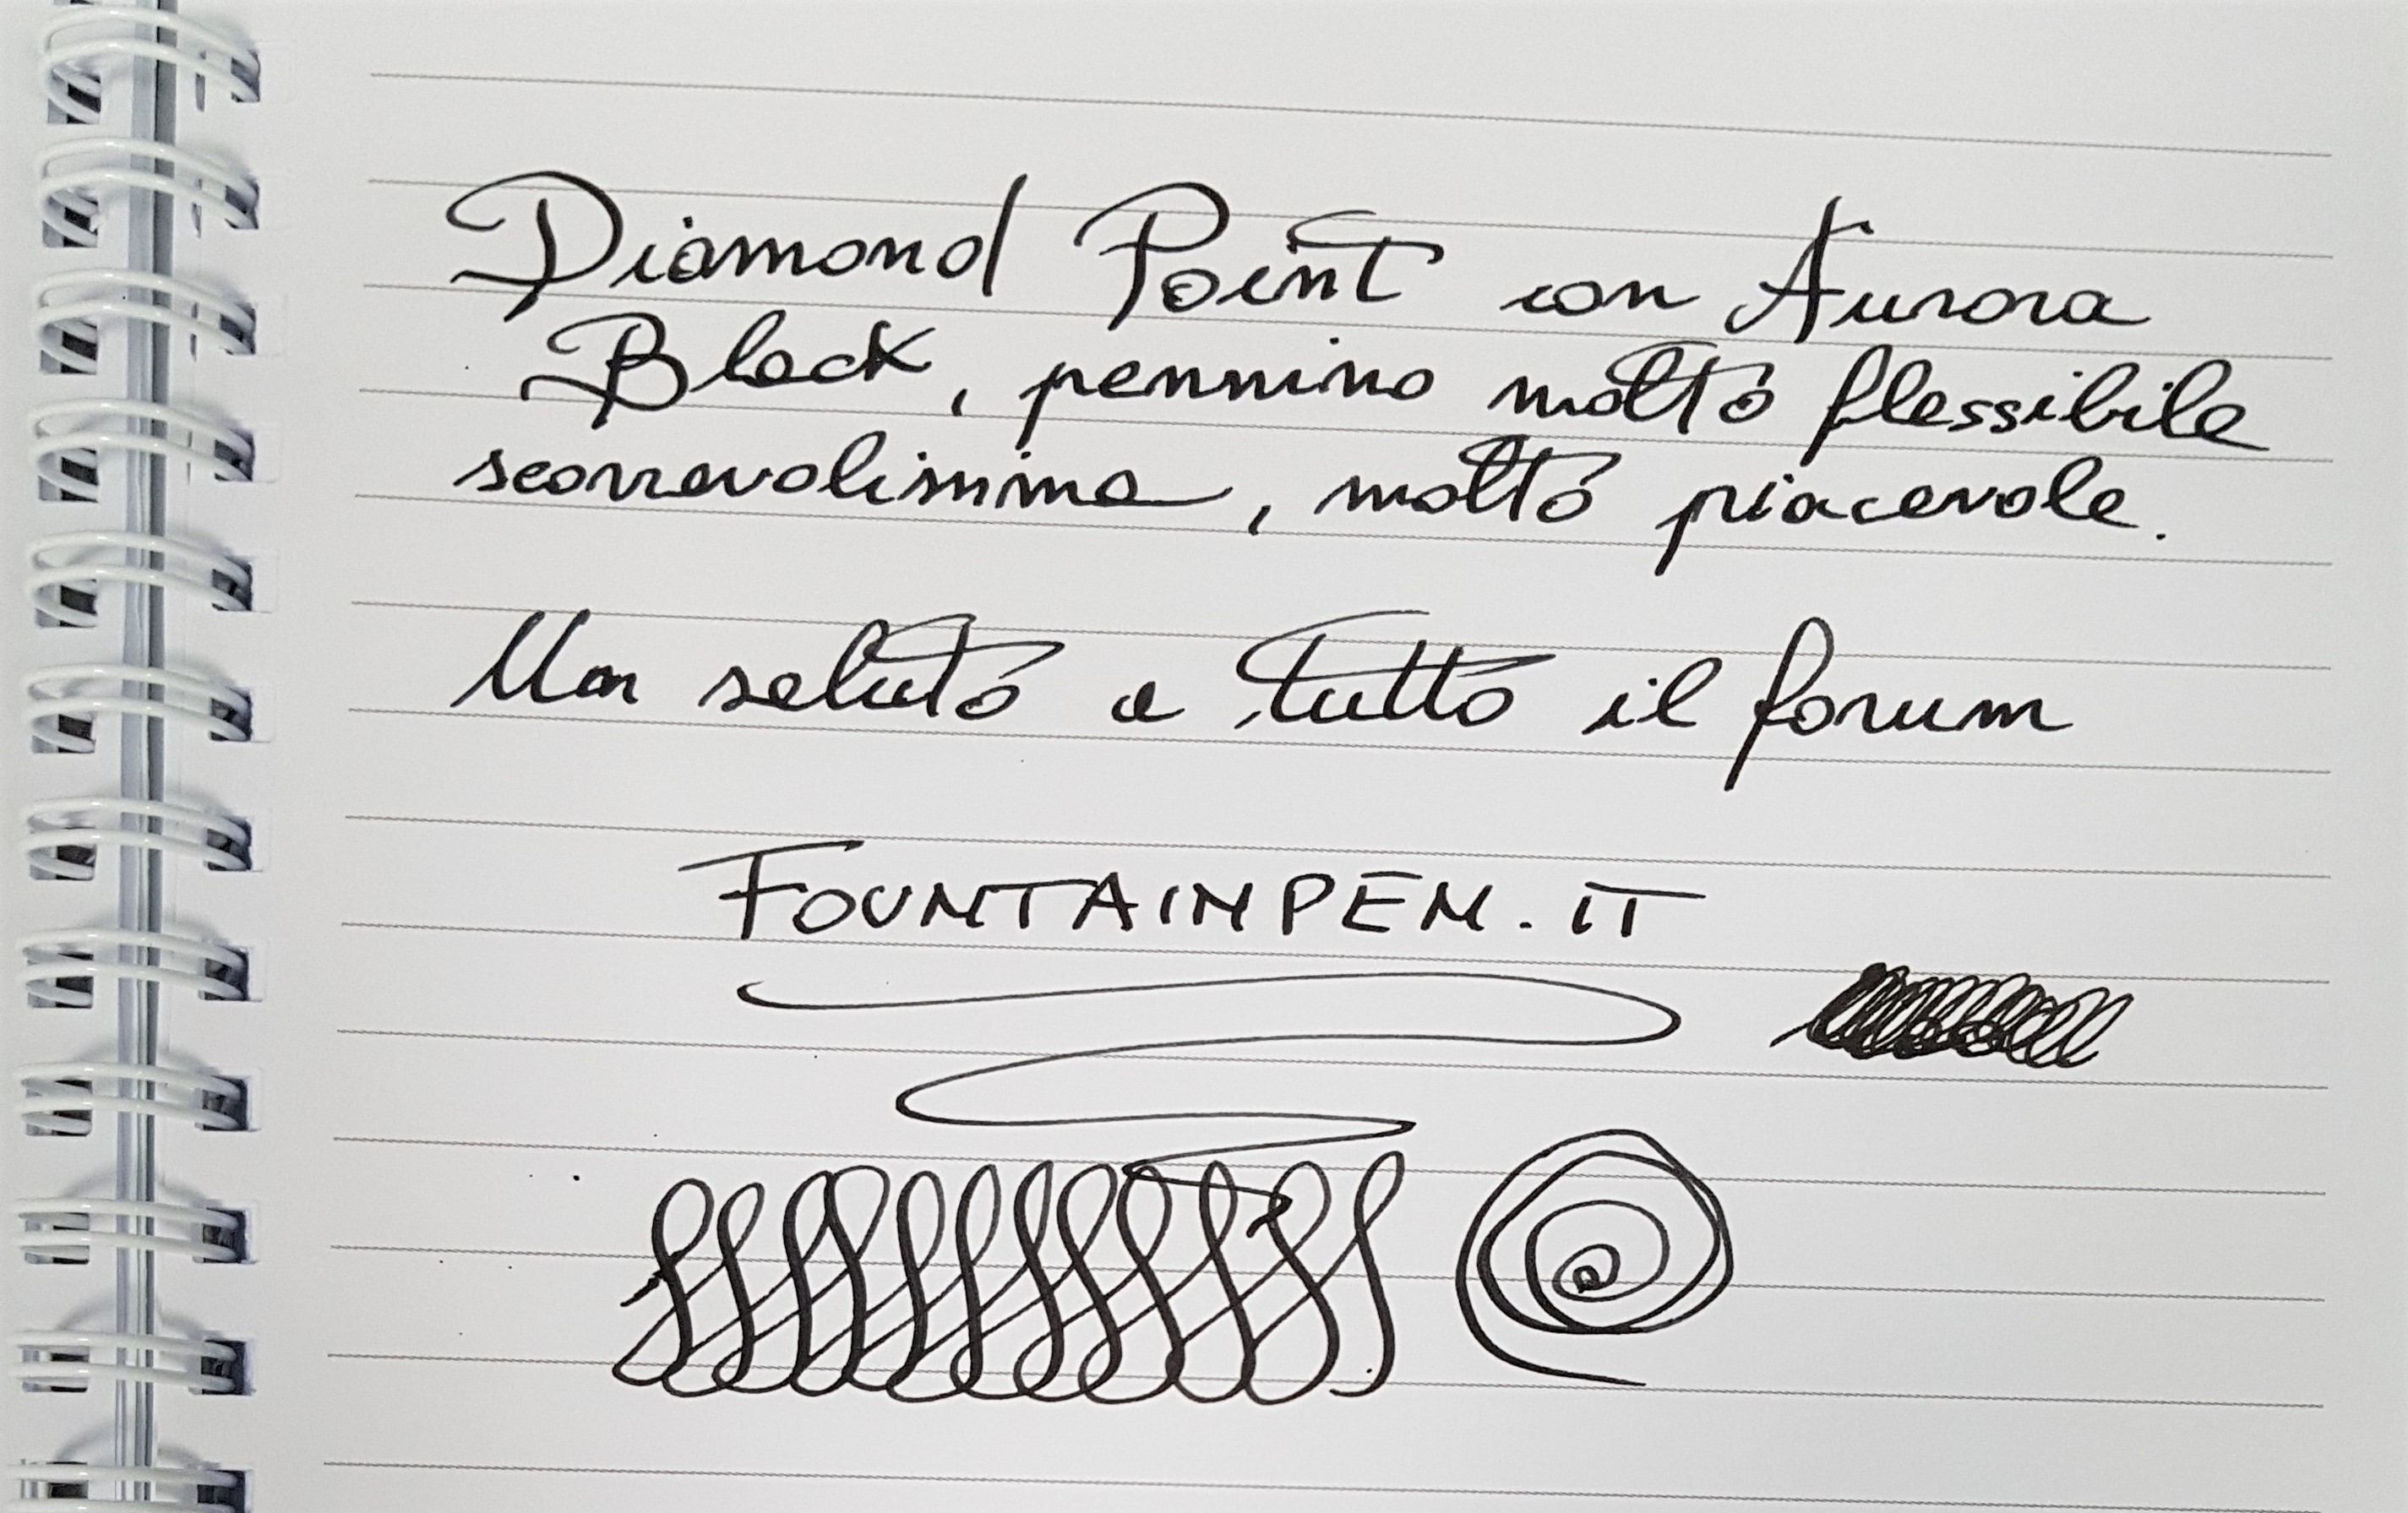 Diamond Point con Aurora
Black, pennino molto flessibile
scorrevolissima, molto piacevole.
Un saluto a tutto il forum
FOUNTAINPEN.IT